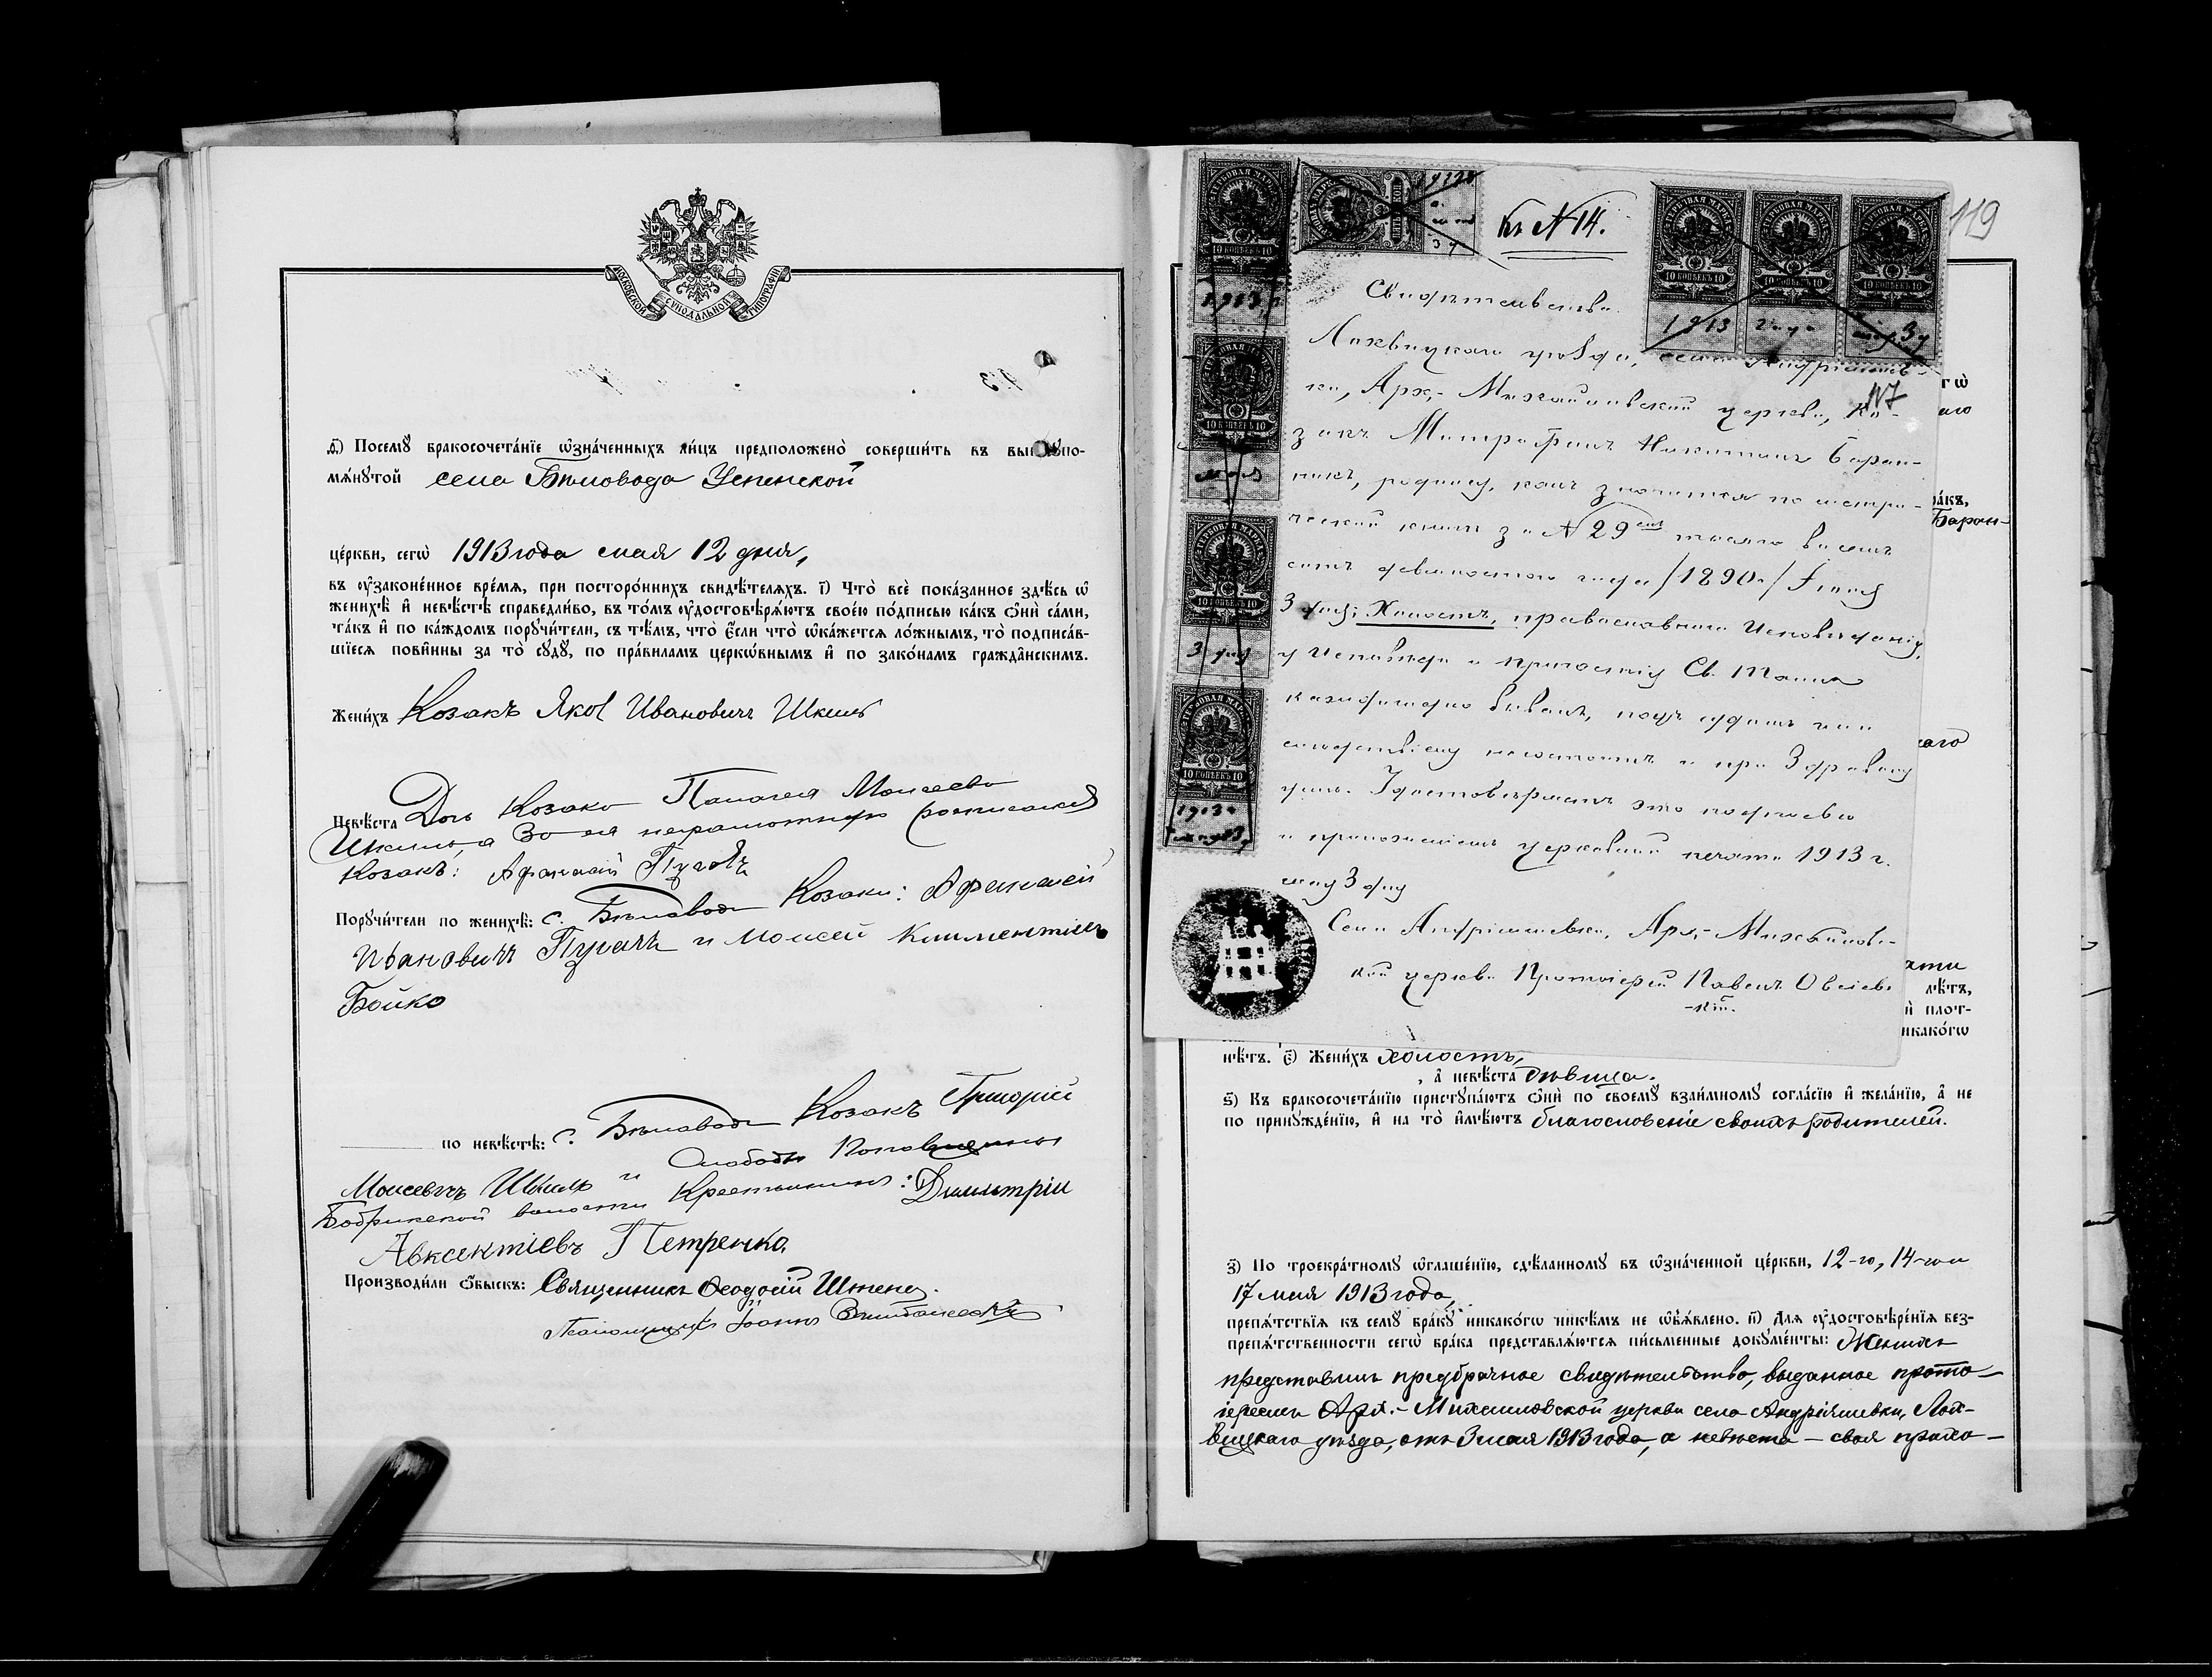 МОСКОВСКОЙ СѴНОДАЛЬНОЙ ТИПОГРАФІИ
д҃) Посемꙋ̀ бракосочета́нїе ѡ҆зна́ченныхъ ли́цъ предположено̀ соверши́ть въ вышеꙋпо-
мѧ́нꙋтой села Бѣловода Успенской
це́ркви, сегѡ̀ 1913 года мая 12 дня,
въ ᲂу҆законе́нное вре́мѧ, при посторо́ннихъ свидѣ́телѧхъ. і҃) Что̀ всѐ пока́занное здѣ́сь ѡ҆
женихѣ̀ и҆ невѣ́стѣ справедли́во, въ то́мъ ᲂу҆достовѣрѧ́ютъ свое́ю по́дписью ка́къ ѻ҆нѝ са́ми,
та́къ и҆ по ка́ждомъ порꙋчи́тели, съ тѣ́мъ, что̀ є҆́сли что̀ ѡ҆ка́жетсѧ ло́жнымъ, то̀ подписа́в-
шїесѧ пови́нны за то̀ сꙋдꙋ̀, по пра́виламъ церкѡ́внымъ и҆ по зако́намъ гражда̑нскимъ.
Жени́хъ Козакъ Яковъ Ивановичъ Шкиль
Невѣ́ста Дочь Козака Палагея Моисеева
Шкиль, а за ея неграмотную росписался
Козакъ: Афанасій Пугачъ
Порꙋчи́тели по женихѣ̀: с. Бѣловода Козаки: Афанасій
Ивановичъ Пугачъ и Моисей Климентіевъ
Бойко
по невѣ́стѣ: с. Бѣловода Козакъ Григорій
Моисеевичъ Шкиль и Слободы
Бобрикской волости Крестьянинъ: Димитрій
Авксентіевъ Петренко.
Производи́ли ѻ҆́быскъ: Священникъ Ѳеодосій
Псаломщикъ Іоаннъ
119
Къ № 14.
ТЕРБОВАЯ МАРКА
10 КОПѢЕКЪ 10
1913 года мая 3 д
Свидѣтельство.
Лохвицкаго уѣзда, села Андріяшев-
ки, Арх.-Михайловской церкви, Ко-
117
закъ Митрофанъ Никитинъ Баран-
никъ, родился, какъ значится по метри-
ческой книгѣ за № 29 тысяча восемь
сотъ девяностого года /1890 г./ Іюня
3 дня; Холостъ, православнаго исповѣданія,
у Исповѣди и причастія Св. Таинъ
ежегодно бывалъ, подъ судомъ или
слѣдствіемъ не состоитъ и при здравомъ
умѣ. Удостовѣряетъ это подписью
и приложеніемъ церковной печати 1913 г.
мая 3 дня
Села Андріяшевки, Арх.-Михайловс-
кой церкви Протоіерей Павелъ Овсіев-
-кій.
нѣ́тъ. є҃) Жени́хъ холостъ,
, а҆ невѣ́ста дѣвица.
ѕ҃) Къ бракосочета́нїю пристꙋпа́ютъ ѻ҆нѝ по своемꙋ̀ взаи́мномꙋ согла́сїю и҆ жела́нїю, а҆ не
по принꙋжде́нїю, и҆ на то̀ и҆мѣ́ютъ благословеніе своихъ родителей.
з҃) По троекра́тномꙋ ѡ҆глаше́нїю, сдѣ́ланномꙋ въ ѡ҆зна́ченной це́ркви, 12-го, 14-го и
17 мая 1913 года,
препѧ́тствїѧ къ семꙋ̀ бра́кꙋ никако́гѡ никѣ́мъ не ѡ҆б̾ѧ́влено. и҃) Длѧ ᲂу҆достовѣре́нїѧ без-
препѧ́тственности сегѡ̀ бра́ка представлѧ́ютсѧ пи́сьменные докꙋме́нты: Женихъ
представилъ предбрачное свидѣтельство, выданное прото-
іереемъ Арх.-Михаиловской церкви села Андріяшевки, Лох-
вицкаго уѣзда, отъ 3 мая 1913 года, а невѣста – своя прихо-